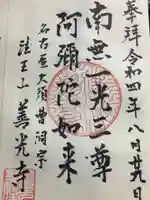 奉拝 令和四年八月廿九日
南無一光三尊
阿彌陀如来
名古屋大須曹洞宗
法王山 善光寺